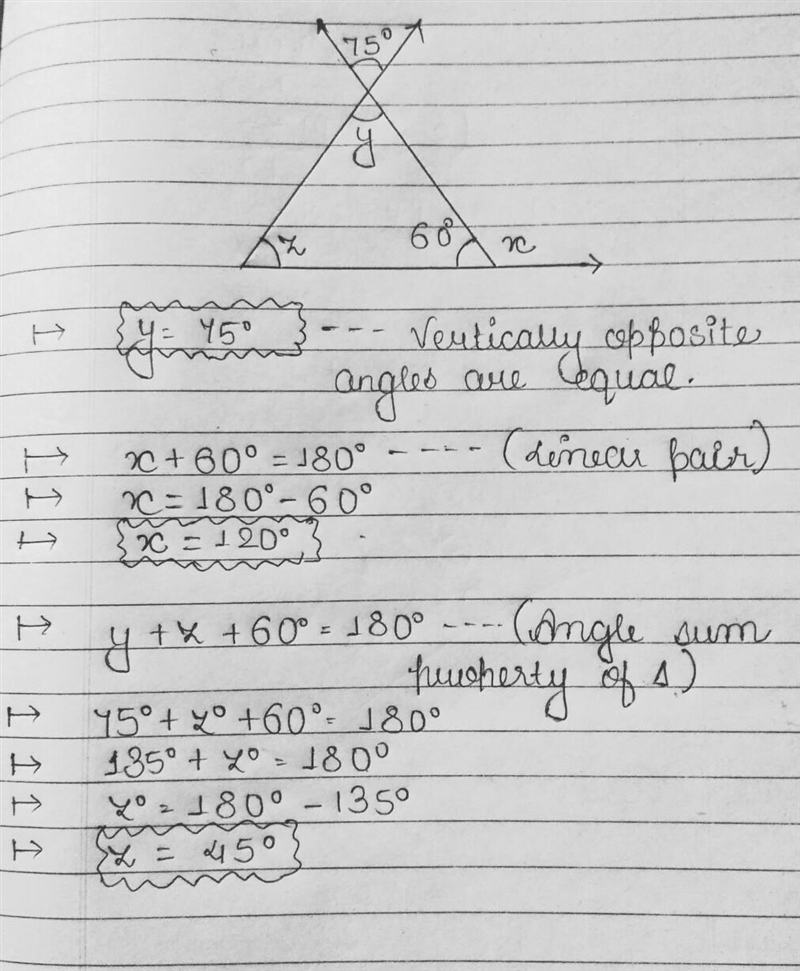 75°
y
z 60° x
↦ y = 75° --- Vertically opposite
angles are equal.
↦ x + 60° = 180° ---- (Linear pair)
↦ x = 180° - 60°
↦ x = 120°
↦ y + z + 60° = 180° ---- (Angle sum
property of Δ)
↦ 75° + z° + 60° = 180°
↦ 135° + z° = 180°
↦ z° = 180° - 135°
↦ z = 45°